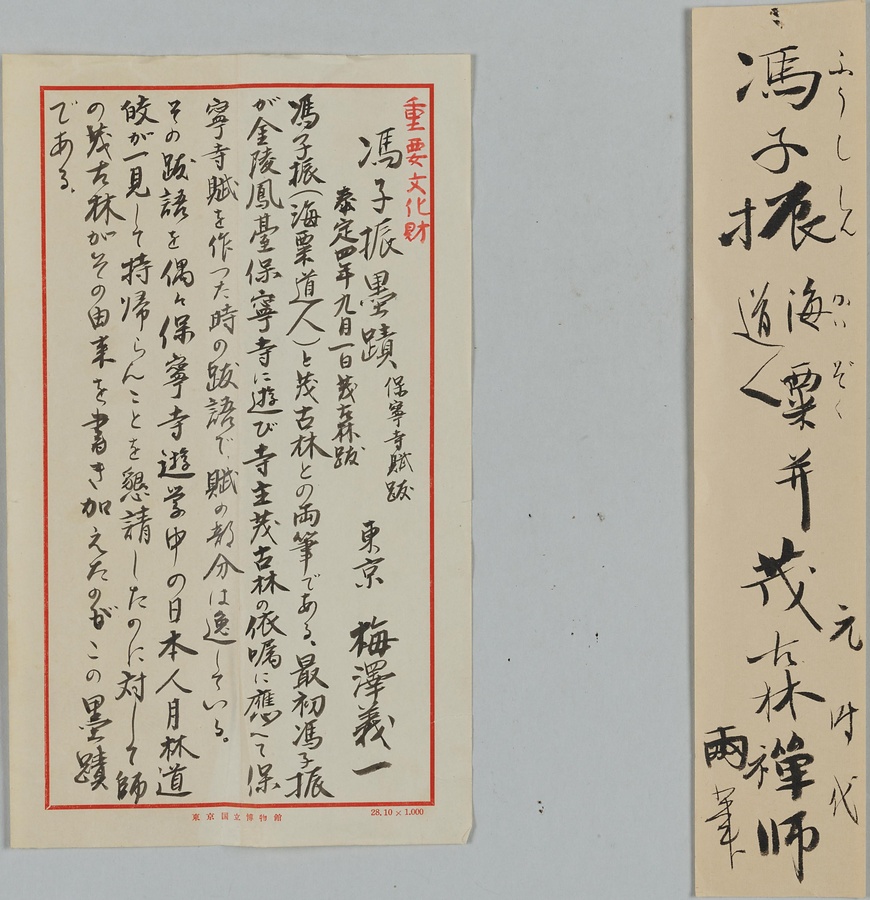 ふうししん
馮子振
かいぞく
海粟
道人
并茂古林禅师
元时代
兩筆
重要文化財
馮子振墨蹟 保寧寺賦跋 東京 梅澤義一
泰定四年九月一日茂古林跋
馮子振(海粟道人)と茂古林との両筆である、最初馮子振
が金陵鳳臺保寧寺に遊び寺主茂古林の依嘱に應へて保
寧寺賦を作つた時の跋語で、賦の部分は逸している。
その跋語を偶々保寧寺遊学中の日本人月林道
皎が一見して持帰らんことを懇請したのに対して師
の茂古林がその由来を書き加えたのがこの墨蹟
である、
東京国立博物館
28,10×1.000